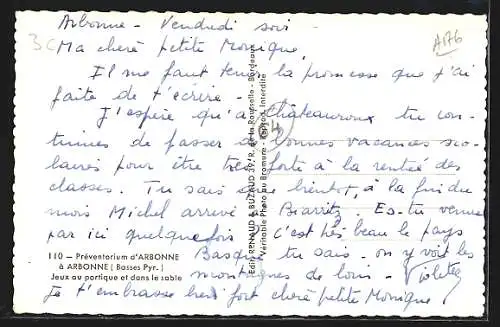 Arbonne - Vendredi soir -
3C
A176
Ma chère petite Monique
Il me faut tenir la promesse que j'ai
faite de t'écrire
J'espère qu'à Châteauroux tu con-
tinues de passer de bonnes vacances sco-
laires pour être très forte à la rentrée des
classes. Tu sais que bientôt, à la fin du
mois Michel arrive Biarritz. Es-tu venue
par ici quelquefois c'est très beau le pays
Basque tu sais - on y voit les
montagnes de loin. Violette
Je t'embrasse bien fort chère petite Monique
110 - Préventorium d'ARBONNE
à ARBONNE (Basses Pyr.)
Jeux au portique et dans le sable
Edit. RENAUD & BUZAUD 39, R. de la Rousselle - Bordeaux
Véritable Photo au Bromure - Reprod. Interdite